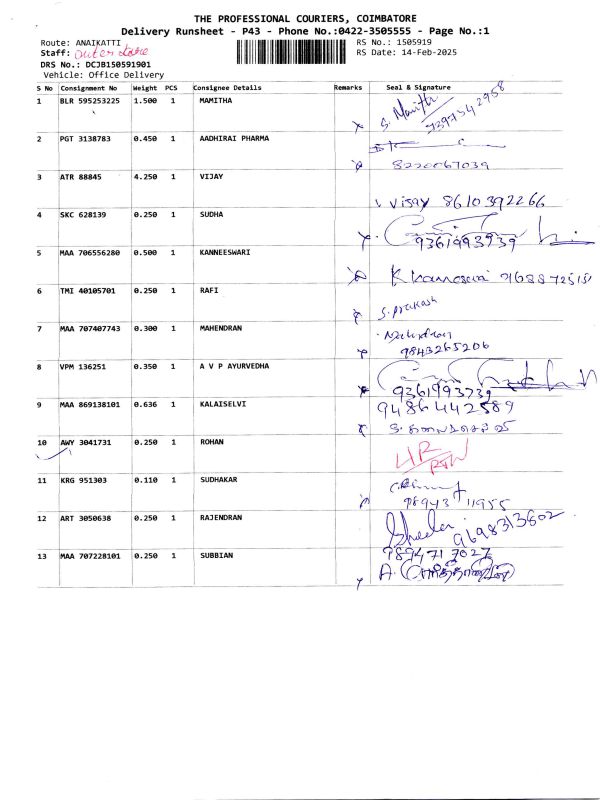 THE PROFESSIONAL COURIERS, COIMBATORE
Delivery Runsheet - P43 - Phone No.:0422-3505555 - Page No.:1
Route: ANAIKATTI
RS No.: 1505919
Staff:
RS Date: 14-Feb-2025
DRS No.: DCJB150591901
Vehicle: Office Delivery
S No Consignment No Weight PCS Consignee Details Remarks Seal & Signature
1 BLR 595253225 1.500 1 MAMITHA S. Mamitha
7397342958
2 PGT 3138783 0.450 1 AADHIRAI PHARMA
8220067039
3 ATR 88845 4.250 1 VIJAY Vijay 8610392266
4 SKC 628139 0.250 1 SUDHA
9361993739
5 MAA 706556280 0.500 1 KANNEESWARI
6 TMI 40105701 0.250 1 RAFI S. prakash
7 MAA 707407743 0.300 1 MAHENDRAN
9843265206
8 VPM 136251 0.350 1 A V P AYURVEDHA
9361993739
9 MAA 869138101 0.636 1 KALAISELVI 9486442589
S. கலைச்செல்வி
10 AWY 3041731 0.250 1 ROHAN
11 KRG 951303 0.110 1 SUDHAKAR
98943 11955
12 ART 3050638 0.250 1 RAJENDRAN
9698313602
13 MAA 707228101 0.250 1 SUBBIAN 9894717027